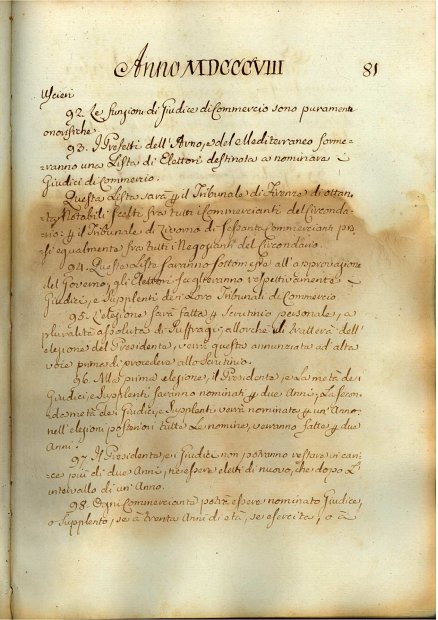 Anno MDCCCVIII 81
Uscieri
92. Le funzioni di Giudice di Commercio sono puramente
onorifiche.
93. I Prefetti dell'Arno, e del Mediterraneo forme-
ranno una Lista di Elettori destinata a nominare i
Giudici di Commercio.
Questa Lista sarà p il Tribunale di Firenze di ottan-
ta Notabili scelti fra tutti i Commercianti del Circonda-
rio: p il Tribunale di Livorno di sessanta Commercianti pre-
si egualmente fra tutti i Negozianti del Circondario.
94. Queste Liste saranno sottomesse all'approvazione
del Governo; gli Elettori sceglieranno respettivamente i
Giudici, e Supplenti dei Loro Tribunali di Commercio.
95. L'elezione sarà fatta p Scrutinio personale, a
pluralità assoluta di Suffragj; allorchè si tratterà dell'
elezione del Presidente, verrà questa annunziata ad alta
voce prima di procedere allo Scrutinio.
96. Alla prima elezione, il Presidente, e La metà dei
Giudici, e Supplenti saranno nominati p due Anni, La secon-
da metà dei Giudici, e Supplenti verrà nominata p un'Anno;
nell'elezioni posteriori tutte Le nomine, verranno fatte p due
Anni.
97. Il Presidente, e i Giudici non potranno restare in cari-
ca più di due Anni, nè essere eletti di nuovo, che dopo L'
intervallo di un'Anno.
98. Ogni Commerciante potrà essere nominato Giudice,
o Supplento, se à trenta Anni di età, se esercita, o à